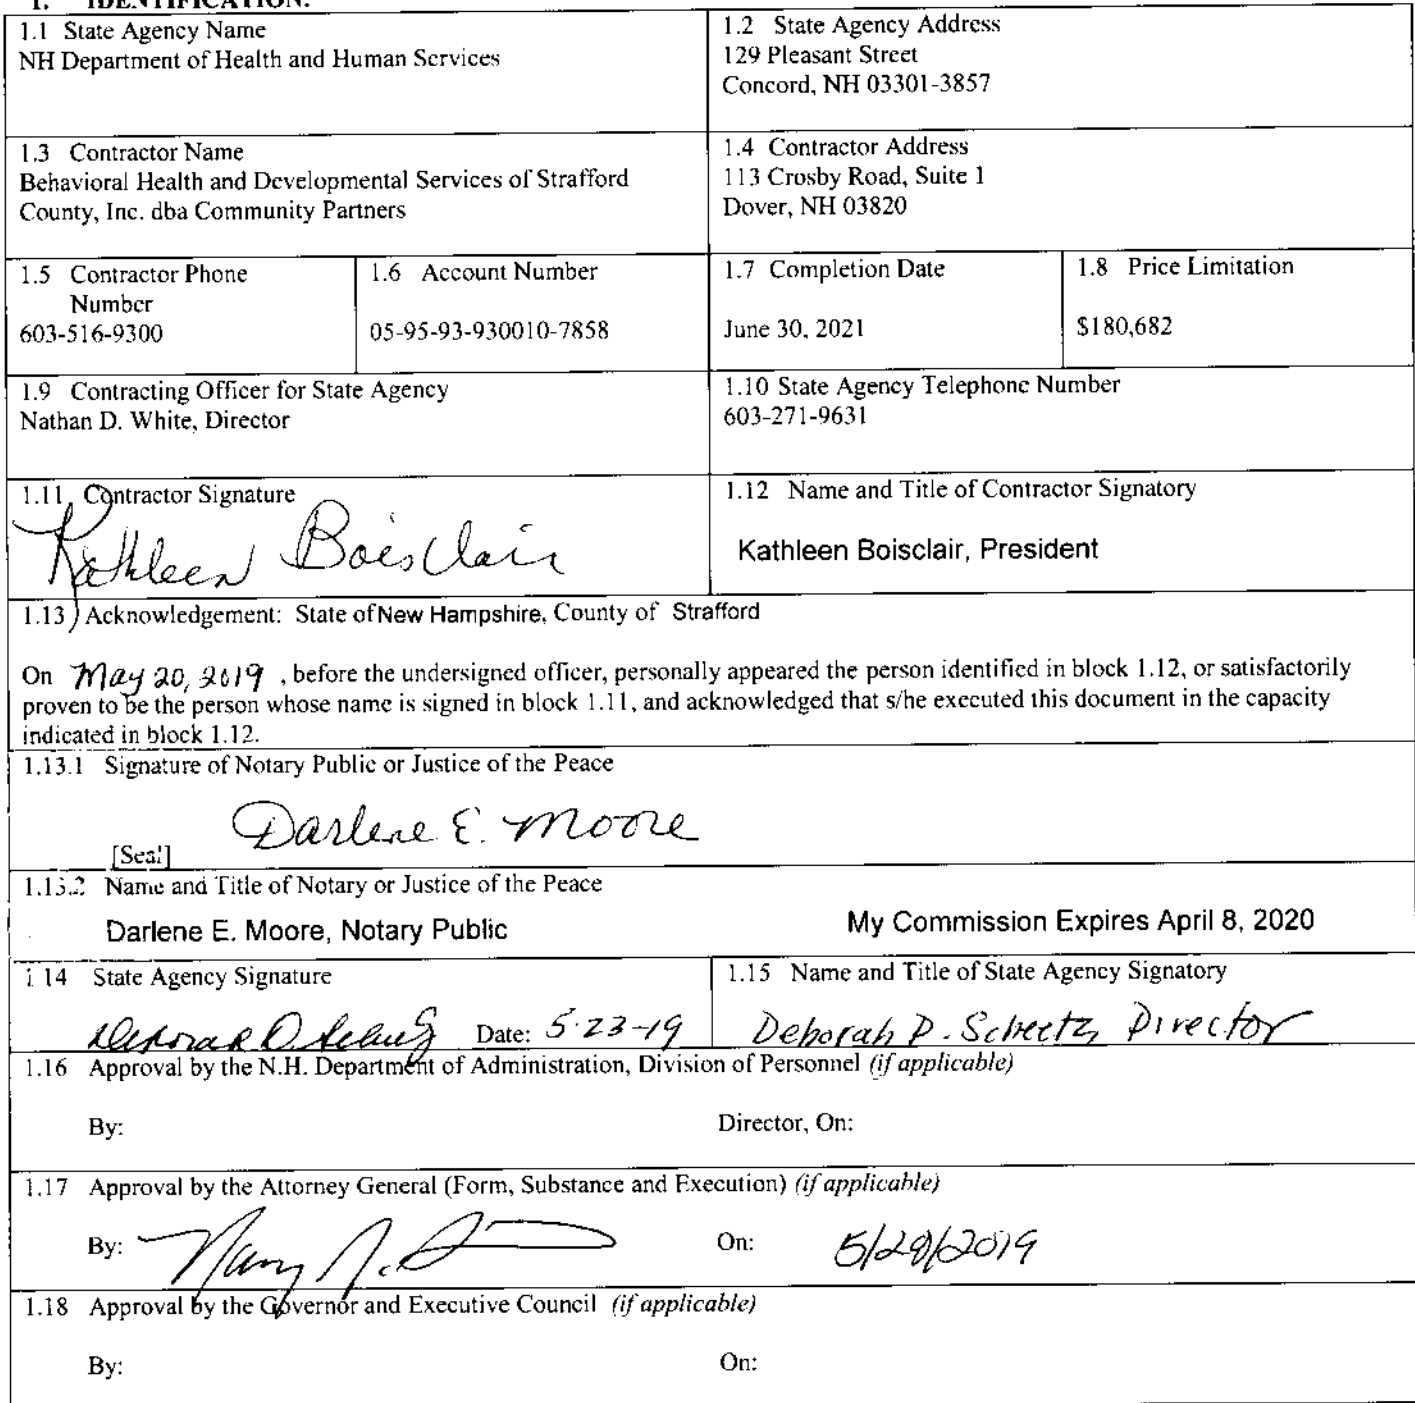 1. IDENTIFICATION.
1.1 State Agency Name
NH Department of Health and Human Services
1.2 State Agency Address
129 Pleasant Street
Concord, NH 03301-3857
1.3 Contractor Name
Behavioral Health and Developmental Services of Strafford
County, Inc. dba Community Partners
1.4 Contractor Address
113 Crosby Road, Suite 1
Dover, NH 03820
1.5 Contractor Phone
Number
603-516-9300
1.6 Account Number
05-95-93-930010-7858
1.7 Completion Date
June 30, 2021
1.8 Price Limitation
$180,682
1.9 Contracting Officer for State Agency
Nathan D. White, Director
1.10 State Agency Telephone Number
603-271-9631
1.11 Contractor Signature
Kathleen Boisclair
1.12 Name and Title of Contractor Signatory
Kathleen Boisclair, President
1.13 Acknowledgement: State of New Hampshire, County of Strafford
On May 20, 2019 , before the undersigned officer, personally appeared the person identified in block 1.12, or satisfactorily
proven to be the person whose name is signed in block 1.11, and acknowledged that s/he executed this document in the capacity
indicated in block 1.12.
1.13.1 Signature of Notary Public or Justice of the Peace
Darlene E. Moore
[Seal]
1.13.2 Name and Title of Notary or Justice of the Peace
Darlene E. Moore, Notary Public
My Commission Expires April 8, 2020
1.14 State Agency Signature
Date: 5-23-19
1.15 Name and Title of State Agency Signatory
Deborah D. Scheetz, Director
1.16 Approval by the N.H. Department of Administration, Division of Personnel (if applicable)
By:
Director, On:
1.17 Approval by the Attorney General (Form, Substance and Execution) (if applicable)
By:
On: 5/29/2019
1.18 Approval by the Governor and Executive Council (if applicable)
By:
On: